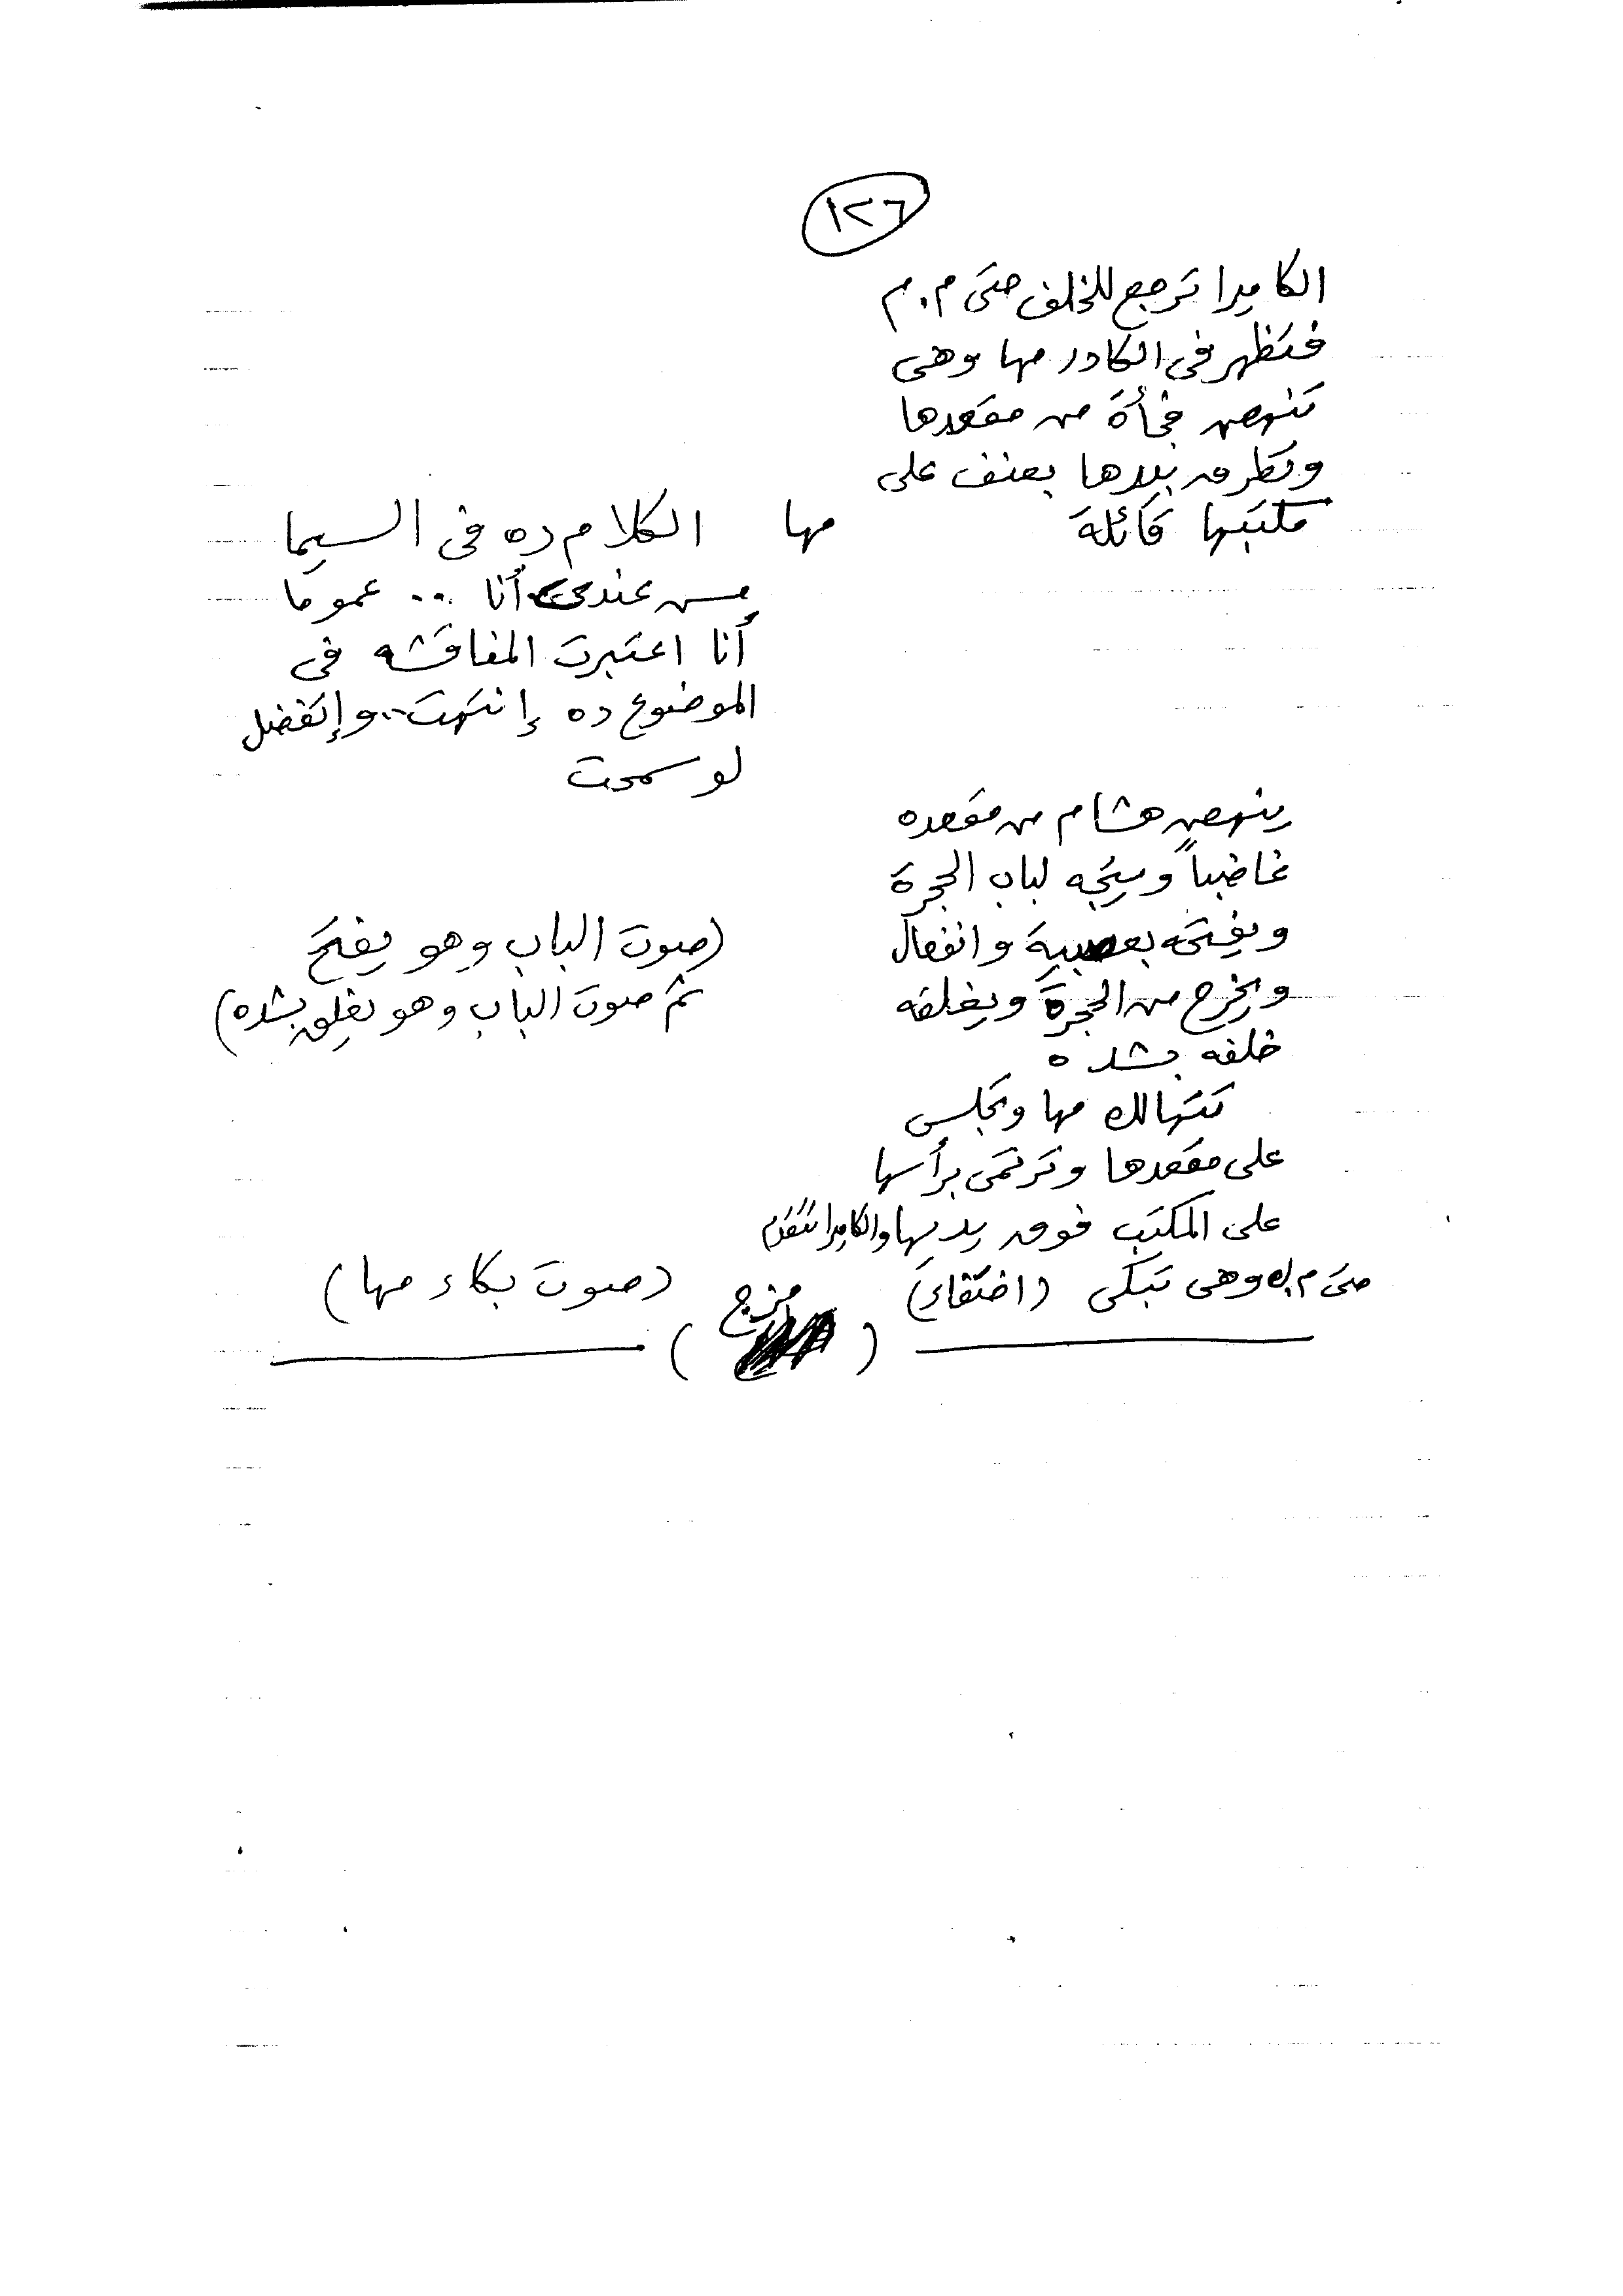 ١٢٦
الكاميرا ترجع للخلف حتى م . م
فتظهر فى الكادر مها وهى
تنهض فجأة من مقعدها
وتطرق بيدها بعنف على
مكتبها قائلة
مها الكلام ده فى السيما
مش عندى أنا .. عموما
أنا اعتبرت المناقشه فى
الموضوع ده إنتهت .. وإتفضل
لو سمحت
ينهض هشام من مقعده
غاضباً ويتجه لباب الحجرة
ويفتحه بعصبية وانفعال
(صوت الباب وهو يفتح
ويخرج من الحجرة ويغلقه
ثم صوت الباب وهو يغلق بشده)
خلفه بشده
تتهالك مها وتجلس
على مقعدها وترتمى برأسها
على المكتب فوق يديها والكاميرا تتقدم
حتى م . ك وهى تبكى (اختفاء)
(صوت بكاء مها)
( مزج )